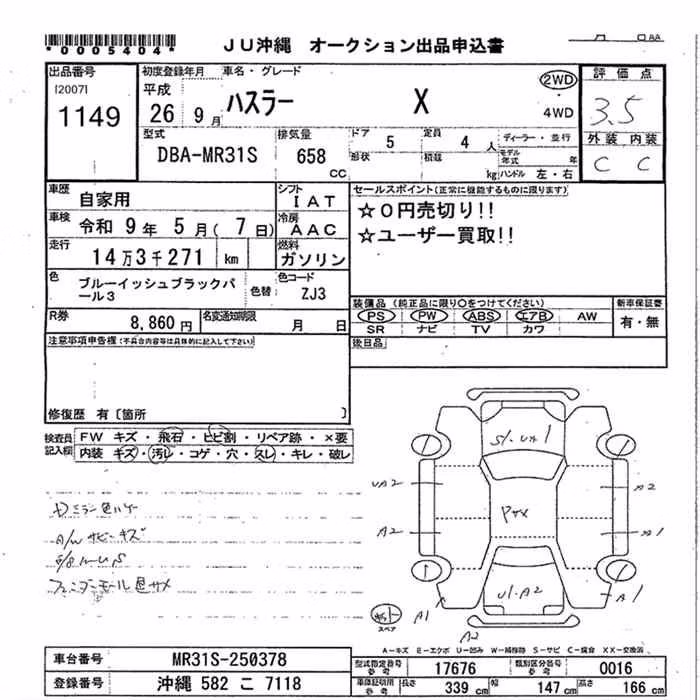 *0005404*
JU沖縄 オークション出品申込書
出品番号 初度登録年月 車名・グレード 評価点
[2007] 平成 ハスラー X 2WD 3.5
1149 26 9月 4WD 外装 内装
型式 排気量 ドア 5 定員 4人 ディーラー・並行 C C
DBA-MR31S 658 cc 形状 積載 kg モデル年式 年
ハンドル 左・右
車歴 自家用 シフト IAT セールスポイント(正常に機能するものに限ります)
車検 令和 9年 5月(7日) 冷房 AAC ☆0円売切り!!
走行 14万3千271 km 燃料 ガソリン ☆ユーザー買取!!
色 ブルーイッシュブラックパール3 色替 色コード ZJ3
装備品(純正品に限り○をつけてください) 新車保証書
R券 8,860円 名変通知期限 月 日 PS PW ABS エアB AW 有・無
SR ナビ TV カワ
注意事項申告欄(不具合内容等は具体的に記入して下さい) 後日品
修復歴 有〔箇所 〕
検査員記入欄 FW キズ・飛石・ヒビ割・リペア跡・×要
内装 キズ・汚レ・コゲ・穴・スレ・キレ・破レ
A1
UA2 A2
A2 A1
A1 A1
A2
スペア
A-キズ E-エクボ U-凹み W-補修跡 S-サビ C-腐食 XX-交換済
車台番号 MR31S-250378 型式指定番号 参考 17676 類別区分番号 参考 0016
登録番号 沖縄 582 こ 7118 車体証明用 参考 長さ 339 cm 幅 147 cm 高さ 166 cm